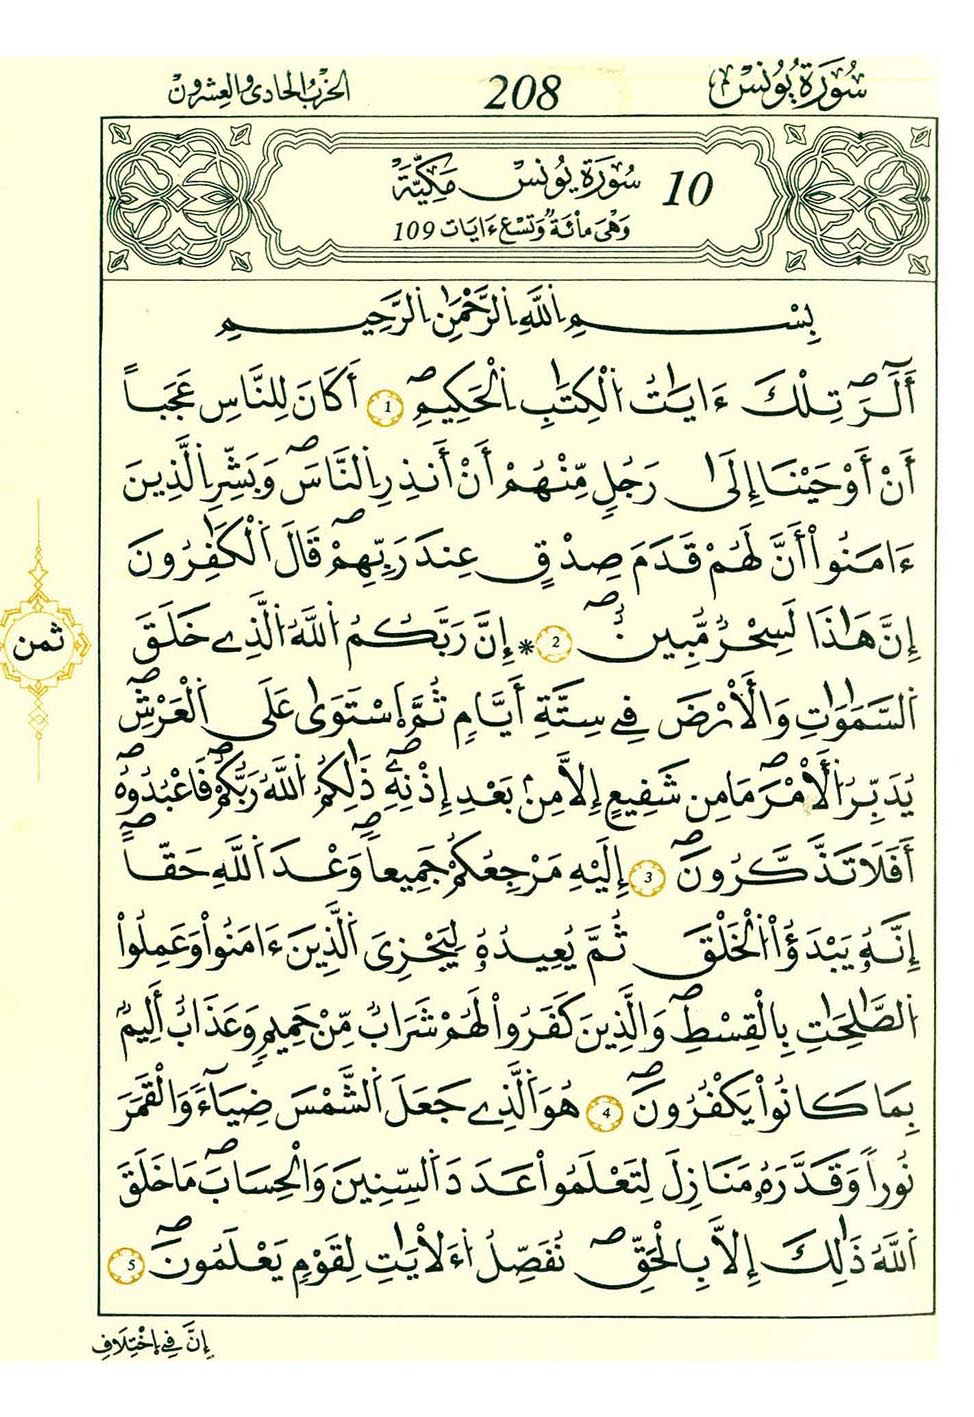 سُورَةُ يُونُسَ 208 الحِزْبُ الحَادِى وَالعِشْرُونَ
10 سُورَةُ يُونُسَ مَكِّيَّةٌ
وَهْىَ مِاْئَةٌ وَتِسْعُ ءَايَاتٍ 109
بِسْمِ اِللَّهِ اِلرَّحْمَٰنِ اِلرَّحِيمِ
أَلَٓرَۖ تِلْكَ ءَايَٰتُ اُلْكِتَٰبِ اِلْحَكِيمِۖ 1 أَكَانَ لِلنَّاسِ عَجَباً
أَنْ أَوْحَيْنَا إِلَىٰ رَجُلٍ مِّنْهُمْ أَنْ أَنذِرِ اِلنَّاسَۖ وَبَشِّرِ اِلَّذِينَ
ءَامَنُواْ أَنَّ لَهُمْ قَدَمَ صِدْقٍ عِندَ رَبِّهِمْۖ قَالَ اَلْكَٰفِرُونَ
إِنَّ هَٰذَا لَسِحْرٌ مُّبِينٌۖ 2 * إِنَّ رَبَّكُمُ اُللَّهُ اُلَّذِے خَلَقَ
اَلسَّمَٰوَٰتِ وَالْأَرْضَ فِے سِتَّةِ أَيَّامٍ ثُمَّ اَسْتَوَىٰ عَلَى اَلْعَرْشِۖ
يُدَبِّرُ اُلْأَمْرَۖ مَا مِن شَفِيعٍ إِلَّا مِنۢ بَعْدِ إِذْنِهِۦۖ ذَٰلِكُمُ اُللَّهُ رَبُّكُمْۖ فَاعْبُدُوهُۖ
أَفَلَا تَذَّكَّرُونَۖ 3 إِلَيْهِ مَرْجِعُكُمْ جَمِيعاًۖ وَعْدَ اَللَّهِ حَقّاًۖ
إِنَّهُۥ يَبْدَؤُاْ اُلْخَلْقَ ثُمَّ يُعِيدُهُۥ لِيَجْزِىَ اَلَّذِينَ ءَامَنُواْ وَعَمِلُواْ
اُلصَّٰلِحَٰتِ بِالْقِسْطِۖ وَالَّذِينَ كَفَرُواْ لَهُمْ شَرَابٌ مِّنْ حَمِيمٍ وَعَذَابٌ أَلِيمٌ
بِمَا كَانُواْ يَكْفُرُونَۖ 4 هُوَ اَلَّذِے جَعَلَ اَلشَّمْسَ ضِيَآءً وَالْقَمَرَ
نُوراً وَقَدَّرَهُۥ مَنَازِلَ لِتَعْلَمُواْ عَدَدَ اَلسِّنِينَ وَالْحِسَابَۖ مَا خَلَقَ
اَللَّهُ ذَٰلِكَ إِلَّا بِالْحَقِّۖ نُفَصِّلُ اُلْأَيَٰتِ لِقَوْمٍ يَعْلَمُونَۖ 5
ثمن
إِنَّ فِے اِخْتِلَٰفِ